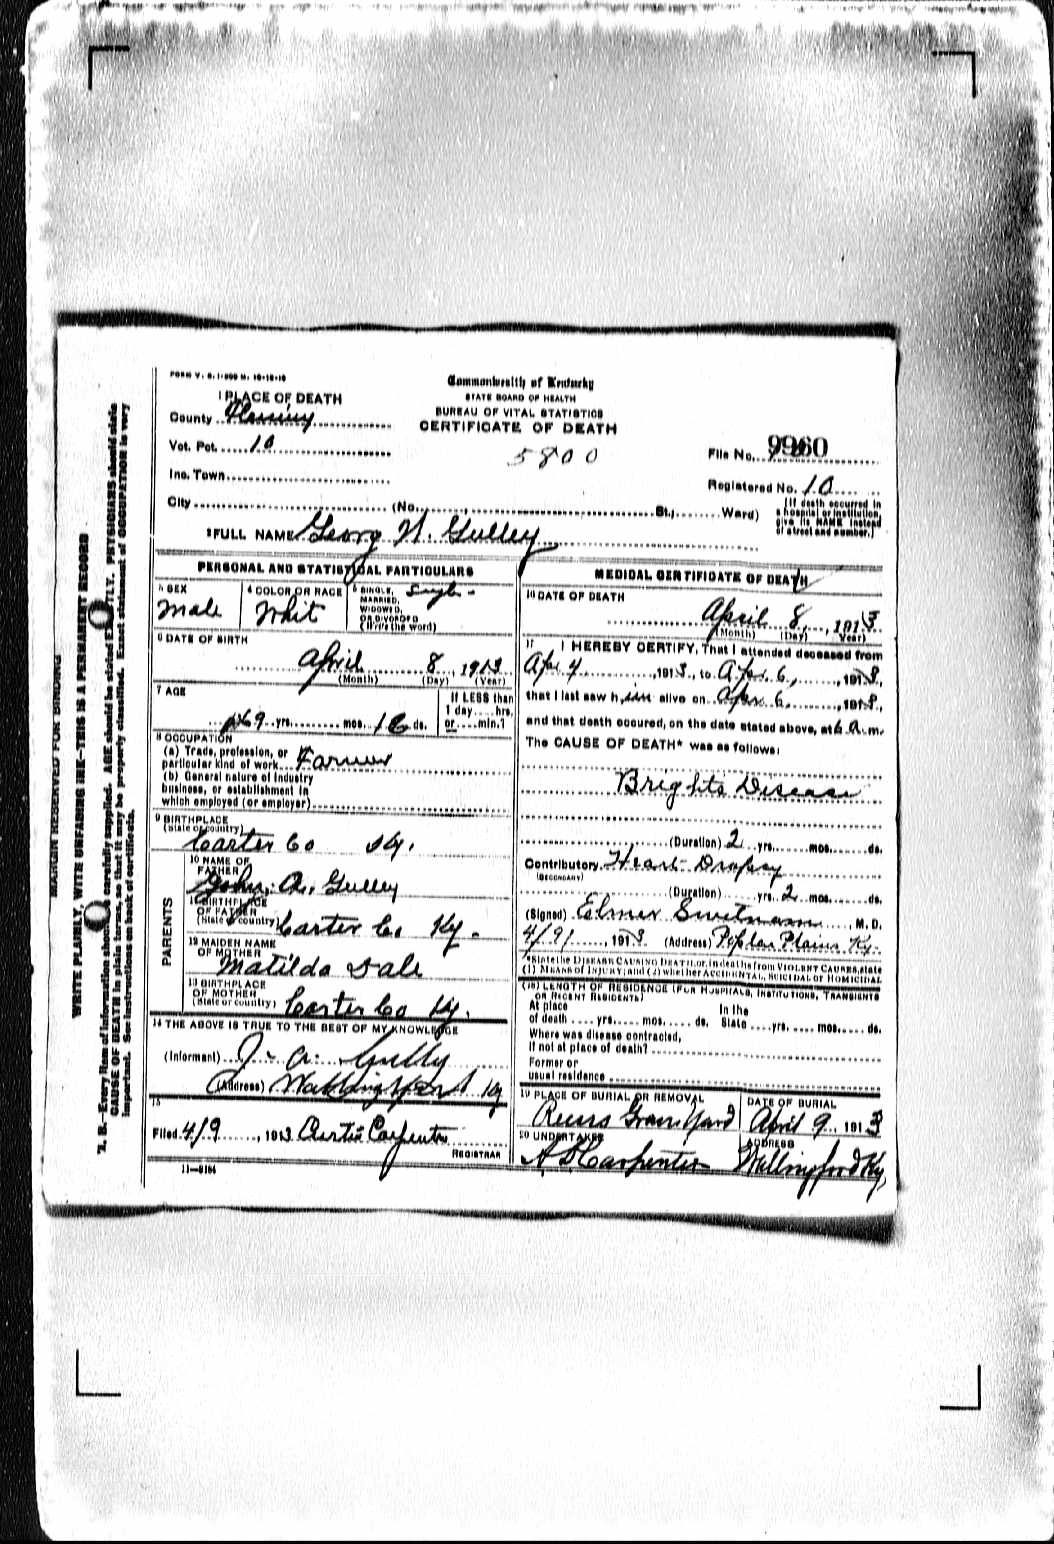 FORM V. S. 1-
Commonwealth of Kentucky
STATE BOARD OF HEALTH
BUREAU OF VITAL STATISTICS
CERTIFICATE OF DEATH
5800
1 PLACE OF DEATH
County Fleming
Vot. Pct. 10
Inc. Town
City (No. St.; Ward)
File No. 9960
Registered No. 10
[If death occurred in
a hospital or institution,
give its NAME instead
of street and number.]
2 FULL NAME Georg W. Gulley
PERSONAL AND STATISTICAL PARTICULARS
3 SEX
Male
4 COLOR OR RACE
Whit
5 SINGLE,
MARRIED,
WIDOWED,
OR DIVORCED
(Write the word)
Single
6 DATE OF BIRTH
April 8, 1913
(Month) (Day) (Year)
7 AGE
69 yrs. mos. 16 ds.
If LESS than
1 day hrs.
or min.?
8 OCCUPATION
(a) Trade, profession, or
particular kind of work Farmer
(b) General nature of industry
business, or establishment in
which employed (or employer)
9 BIRTHPLACE
(State or country)
Carter Co Ky.
PARENTS
10 NAME OF
FATHER
John A. Gulley
11 BIRTHPLACE
OF FATHER
(State or country) Carter Co Ky.
12 MAIDEN NAME
OF MOTHER
Matilda Dale
13 BIRTHPLACE
OF MOTHER
(State or country) Carter Co Ky.
14 THE ABOVE IS TRUE TO THE BEST OF MY KNOWLEDGE
(Informant) J. A. Gully
(Address) Ky
15
Filed 4/9, 1913 Carpenter
REGISTRAR
11-5184
MEDICAL CERTIFICATE OF DEATH
16 DATE OF DEATH
April 8, 1913
(Month) (Day) Year)
17 I HEREBY CERTIFY, That I attended deceased from
Apr 4, 1913, to Apr 6, 1913,
that I last saw him alive on Apr 6, 1913,
and that death occured, on the date stated above, at 6 A.m.
The CAUSE OF DEATH* was as follows:
Brights Disease
(Duration) 2 yrs. mos. ds.
Contributory Heart Dropsy
(SECONDARY)
(Duration) yrs. 2 mos. ds.
(Signed) Elmer Swetnam, M.D.
4/9, 1913 (Address) Poplar Plains Ky.
*State the DISEASE CAUSING DEATH, or, in deaths from VIOLENT CAUSES, state
(1) MEANS OF INJURY; and (2) whether ACCIDENTAL, SUICIDAL OR HOMICIDAL
(18) LENGTH OF RESIDENCE (FOR HOSPITALS, INSTITUTIONS, TRANSIENTS
OR RECENT RESIDENTS)
At place In the
of death yrs. mos. ds. State yrs. mos. ds.
Where was disease contracted,
If not at place of death?
Former or
usual residence
19 PLACE OF BURIAL OR REMOVAL
Graveyard
DATE OF BURIAL
April 9, 1913
20 UNDERTAKER
Carpenter
ADDRESS
Wallingford Ky,
MARGIN RESERVED FOR BINDING
WRITE PLAINLY, WITH UNFADING INK—THIS IS A PERMANENT RECORD
N. B.—Every item of information should be carefully supplied. AGE should be stated EXACTLY. PHYSICIANS should state
CAUSE OF DEATH in plain terms, so that it may be properly classified. Exact statement of OCCUPATION is very
important. See instructions on back of certificate.